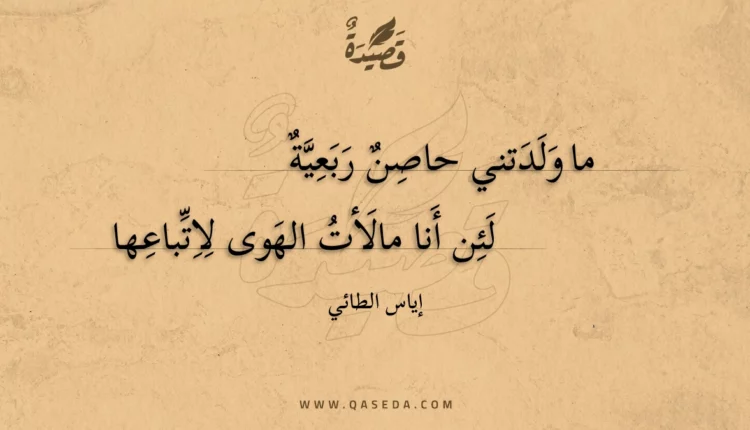 قَصِيدَةٌ
ما وَلَدَتني حاصِنٌ رَبَعِيَّةٌ
لَئِن أَنا مالَأتُ الهَوى لِاِتِّباعِها
إياس الطائي
WWW.QASEDA.COM